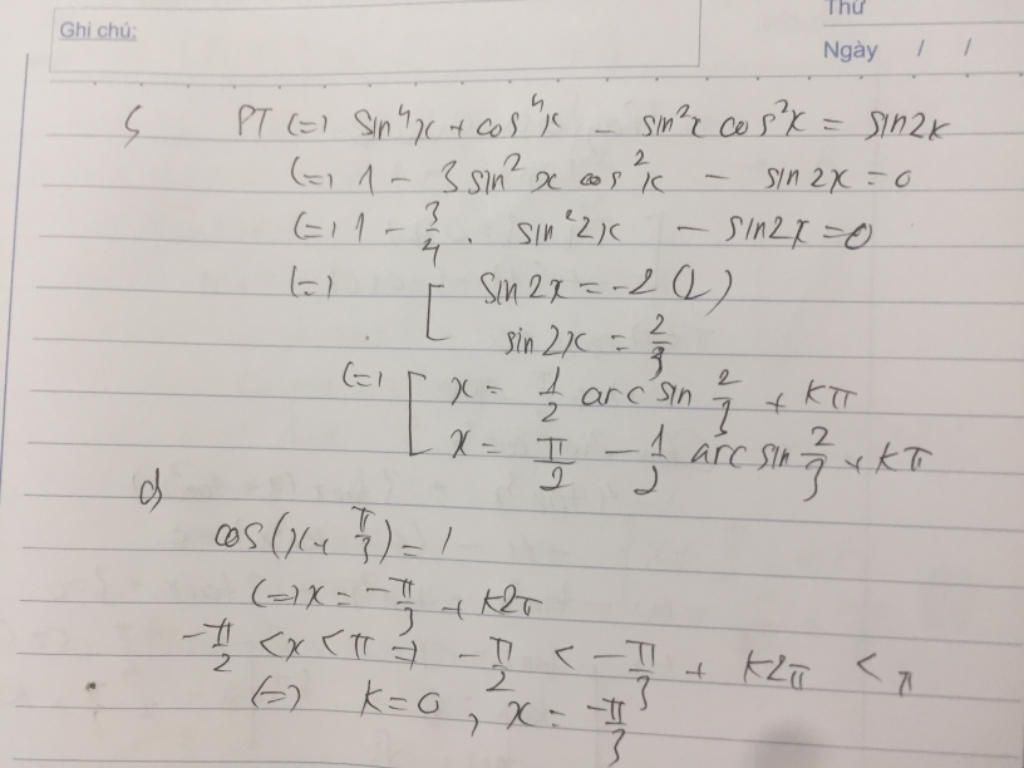 Thứ
Ghi chú:
Ngày / /
PT (=) sin⁴x + cos⁴x - sin²x cos²x = sin2x
(=) 1 - 3 sin²x cos²x - sin 2x = 0
(=) 1 - 3/4 . sin²2x - sin2x = 0
(=) [ sin 2x = -2 (L)
sin 2x = 2/3
(=) [ x = 1/2 arc sin 2/3 + kπ
x = π/2 - 1/2 arc sin 2/3 + kπ
d)
cos(x + π/3) = 1
(=) x = -π/3 + k2π
-π/2 < x < π => -π/2 < -π/3 + k2π < π
(=) k = 0, x = -π/3